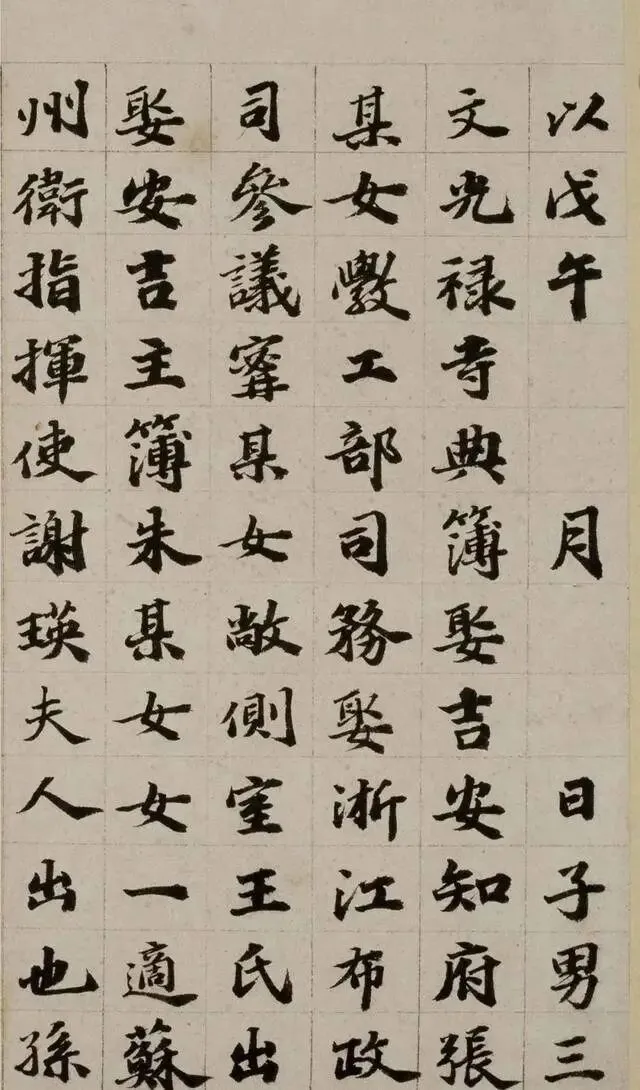 以戊午月日子男三
文光禄寺典簿娶吉安知府張
某女斆工部司務娶淅江布政
司參議寗某女敞側室王氏出
娶安吉主簿朱某女女一適蘇
州衛指揮使謝瑛夫人出也孫